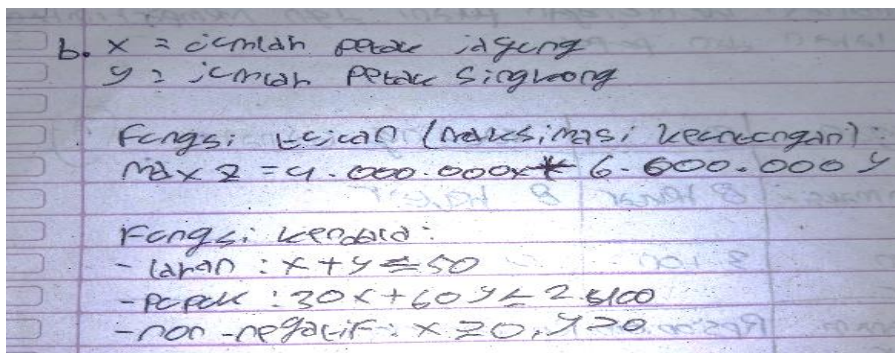 b. x = jumlah petak jagung
y = jumlah petak singkong
Fungsi tujuan (maksimasi keuntungan):
max z = 4.000.000x + 6.600.000 y
Fungsi kendala:
- lahan : x + y ≤ 50
- pupuk : 30x + 60y ≤ 2.400
- non-negatif : x ≥ 0, y ≥ 0